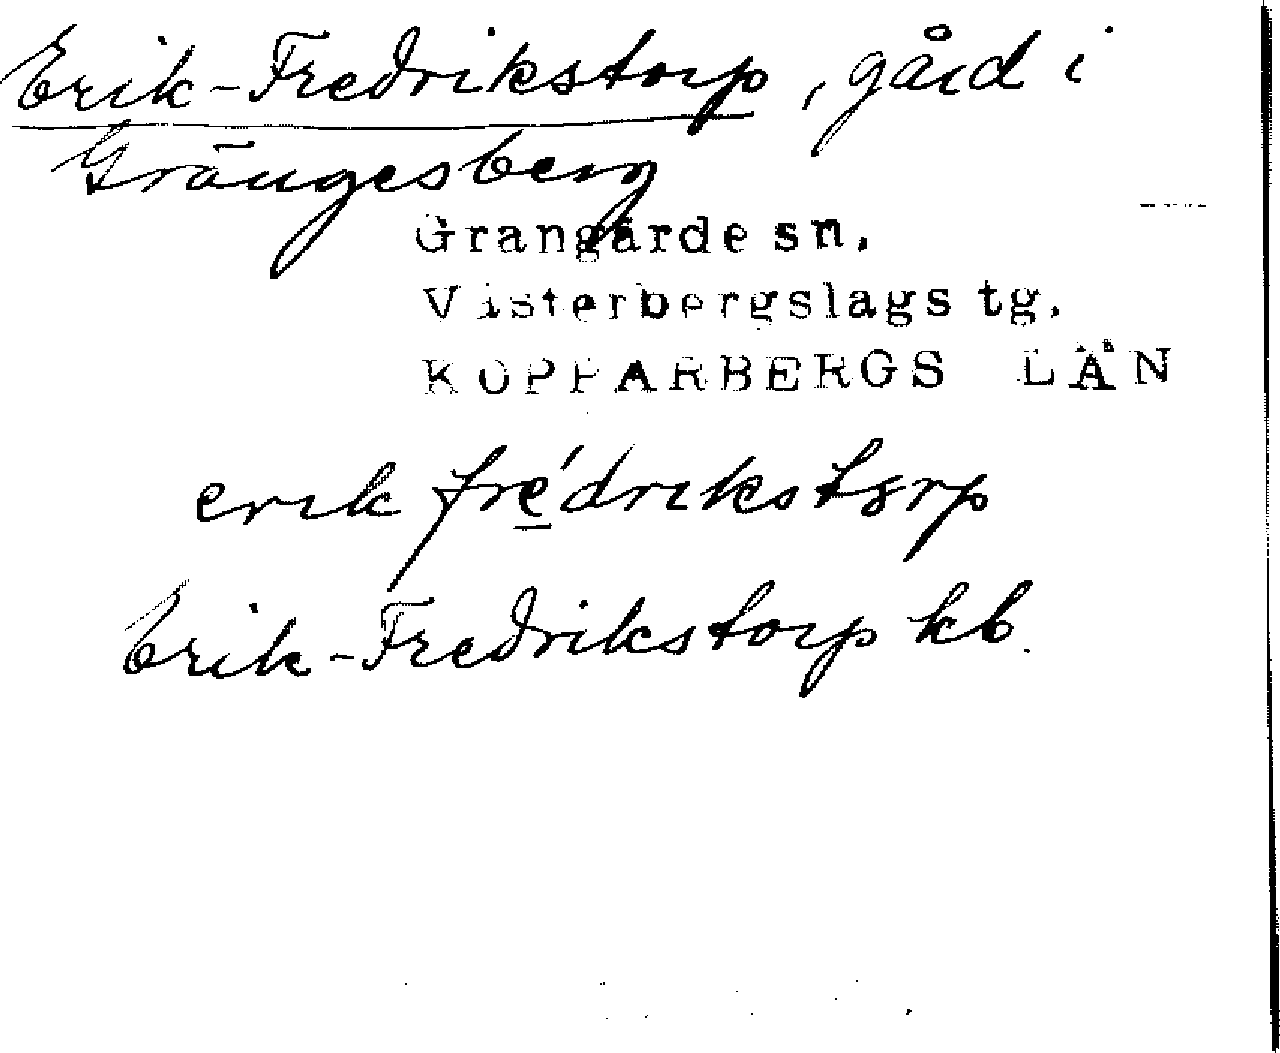 Erik-Fredrikstorp, gård i
Grängesberg
Grangärde sn.
Västerbergslags tg.
KOPPARBERGS LÄN
erik fré̱drikstɔrp
Erik-Fredrikstorp kb.